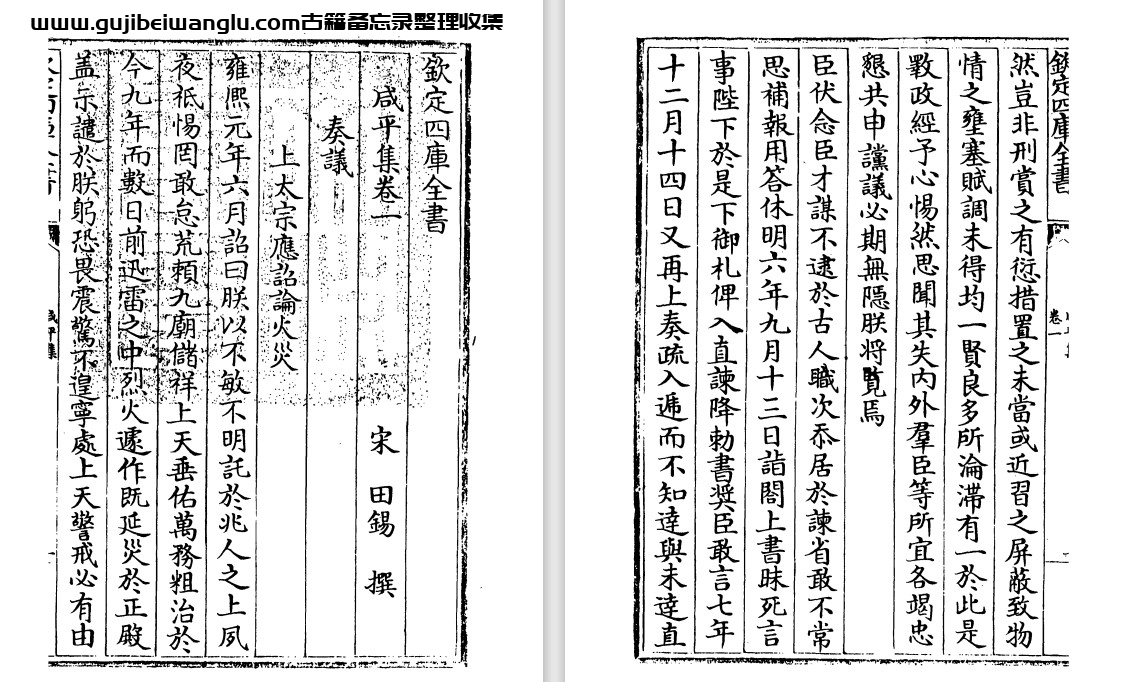 www.gujibeiwanglu.com古籍备忘录整理收集
欽定四庫全書
咸平集卷一
宋 田錫 撰
奏議
上太宗應詔論火災
雍熙元年六月詔曰朕以不敏不明託於兆人之上夙
夜祇惕罔敢怠荒賴九廟儲祥上天垂佑萬務粗治於
今九年而數日前迅雷之中烈火遽作既延災於正殿
盖示譴於朕躬恐畏震驚不遑寧處上天警戒必有由
欽定四庫全書
卷一
然豈非刑賞之有愆措置之未當或近習之屏蔽致物
情之壅塞賦調未得均一賢良多所淪滯有一於此是
斁政經予心惕然思聞其失内外羣臣等所宜各竭忠
懇共申讜議必期無隱朕将覧焉
臣伏念臣才謀不逮於古人職次忝居於諫省敢不常
思補報用答休明六年九月十三日詣閤上書昧死言
事陛下於是下御札俾入直諫降勅書奬臣敢言七年
十二月十四日又再上奏疏入遞而不知逹與未逹直